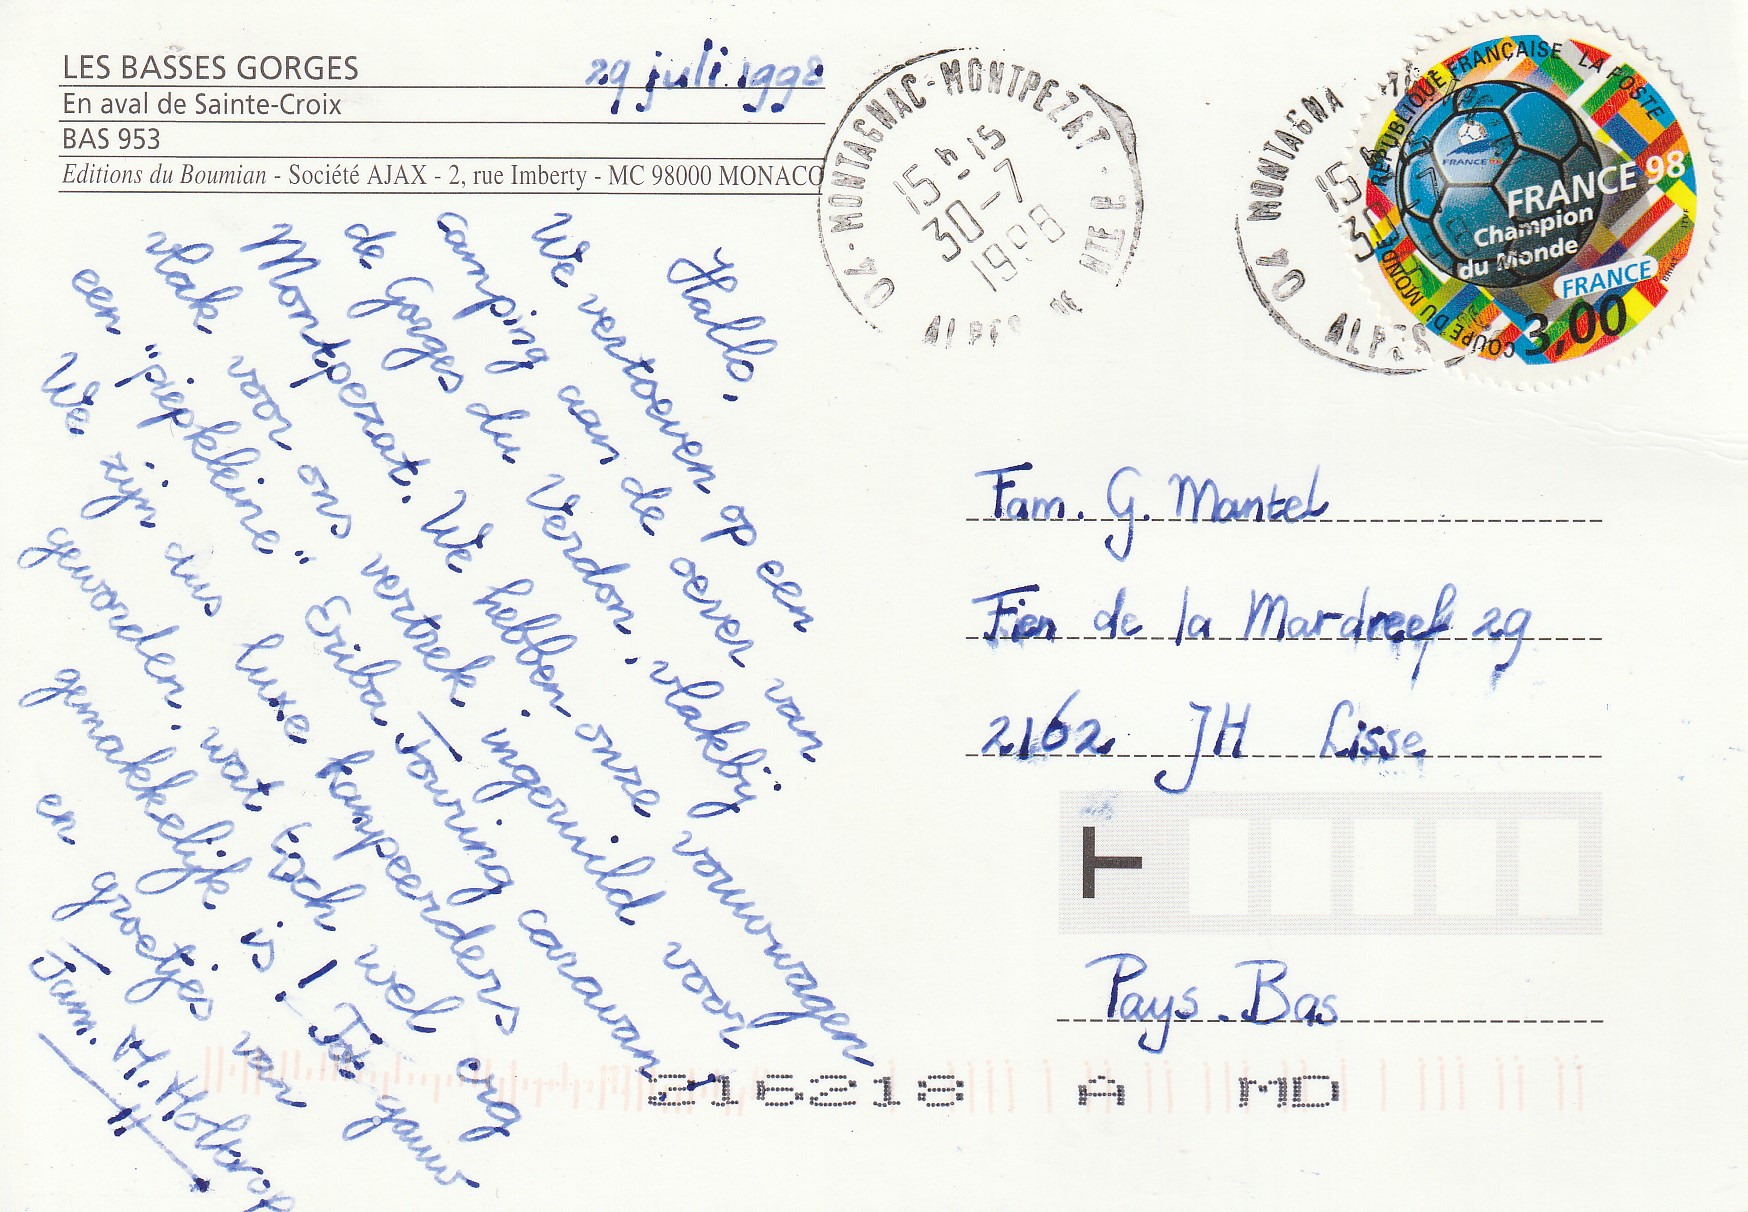 LES BASSES GORGES
En aval de Sainte-Croix
BAS 953
Editions du Boumian - Société AJAX - 2, rue Imberty - MC 98000 MONACO
29 juli 1998
Hallo,
We vertoeven op een
camping aan de oever van
de Gorges du Verdon, vlakbij
Montpezat. We hebben onze vouwwagen
vlak voor ons vertrek ingeruild voor
een "piepkleine" Eriba Touring caravan!
We zijn dus luxe kampeerders
geworden, wat toch wel erg
gemakkelijk is! Tot gauw
en groetjes van
Fam. H. Holtrop
04 - MONTAGNAC-MONTPEZAT
15 H 15
30 - 7
1998
ALPES DE HTE P.
04 MONTAGNA
15
30
ALPES
RÉPUBLIQUE FRANÇAISE LA POSTE
FRANCE 98
FRANCE 98
Champion
du Monde
FRANCE
3,00
COUPE DU MONDE
Fam. G. Mantel
Fien de la Mardreef 29
2162 JH Lisse
T
Pays-Bas
216218 A MD